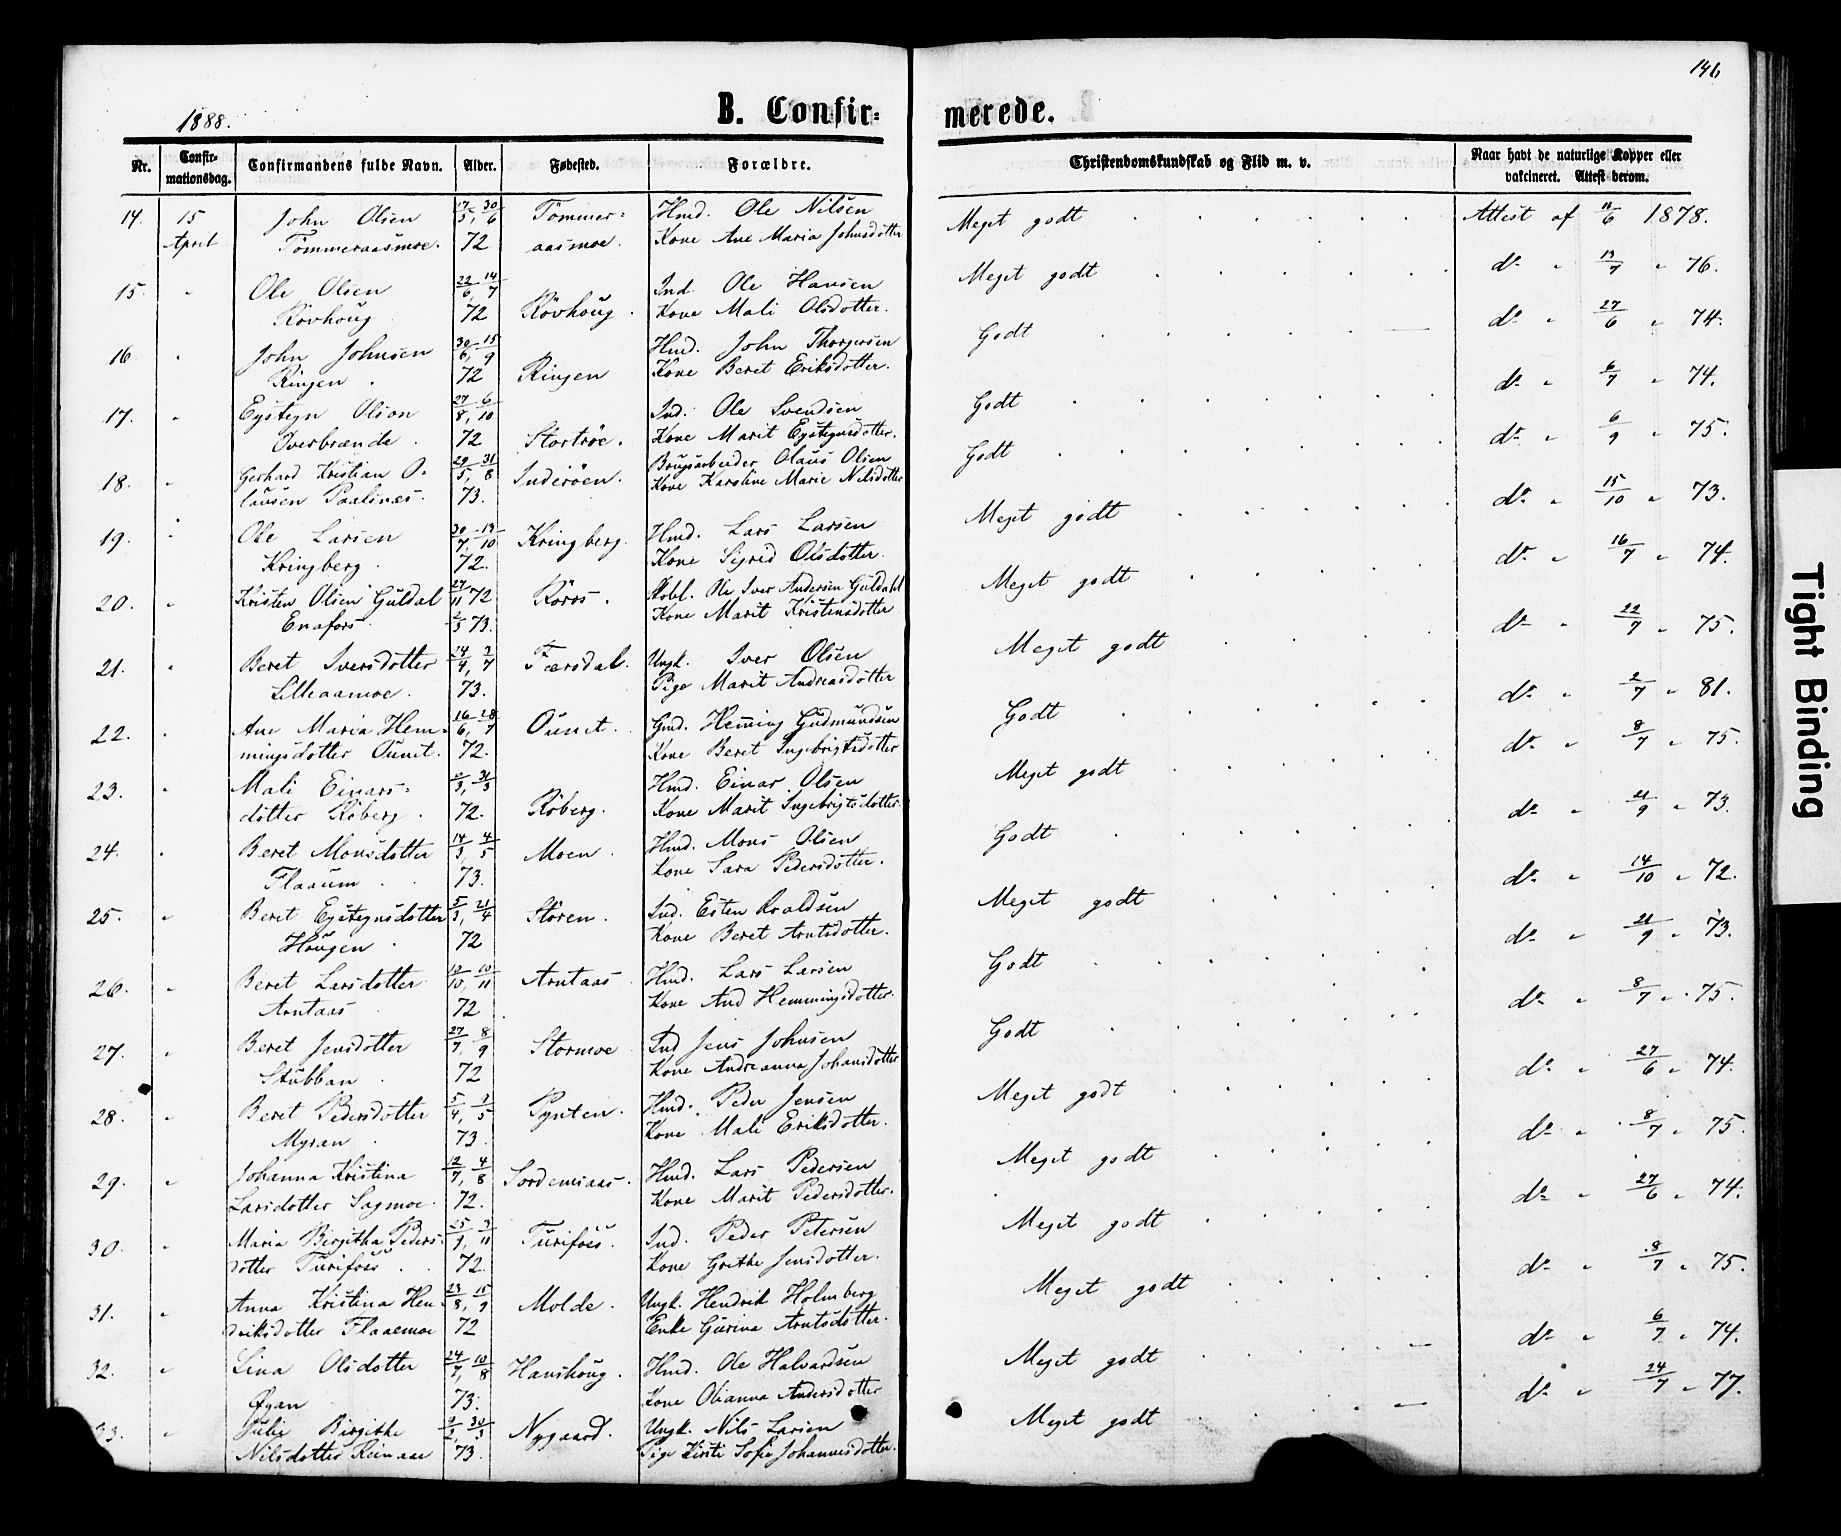 146
1888.
B. Confir-
merede.
Nr.
Confir-
mationsdag.
Confirmandens fulde Navn.
Alder.
Fødested.
Forældre.
Christendomskundskab og Flid m. v.
Naar havt de naturlige Kopper eller
vakcineret. Attest derom.
14. 15 John Olsen 17/5, 30/6 Tömmer= Hmd. Ole Nilsen Meget godt Attest af 11/6 1878.
April Tömmeraasmoe. 72 aasmoe. Kone Ane Maria Johnsdotter
15. " Ole Olsen 22/6, 14/7 Ind. Ole Hansen Meget godt do " 13/7 " 76.
Rövhoug 72 Rövhoug. Kone Mali Olsdotter.
16. " John Johnsen 30/6, 15/9 Hmd. John Thorgersen Godt do " 27/6 " 74.
Ringen. 72 Ringen Kone Beret Eriksdotter.
17. " Eystegn Olson 27/8, 6/10 Ind. Ole Svendsen Godt do " 6/7 " 74.
Overbrænde. 72 Stortröe. Kone Marit Eystegnsdotter.
18. " Gerhard Kristian O- 29/5, 31/8 Inderöen. Brugsarbeider Olaus Olsen Godt do " 6/9 " 75.
lausen Paalsnæs. 73. Kone Karoline Marie Nilsdotter
19. " Ole Larsen 30/7, 13/10 Kringberg. Hmd. Lars Larsen Meget godt do " 15/10 " 73.
Kringberg. 72. Kone Sigrid Olsdotter.
20. " Kristen Olsen Guldal 27/11 72 Röros. Ole Iver Andersen Guldahl Meget godt do " 16/7 " 74.
Enafors. 2/3 73. Kone Marit Kristensdotter
21. " Beret Iversdotter 14/4, 3/7 Færsdal. Ungk. Iver Olsen Meget godt do " 22/7 " 75.
Lilleaamoe. 73. Pige Marit Andreasdotter
22. " Ane Maria Hem- 16/6, 28/7 Öunet. Gmd. Heming Gudmundsen Godt do " 2/7 " 81.
mingsdotter Öunet. 72. Kone Beret Ingebrigtsdotter
23. " Mali Einars= 31/3 Hmd. Einar Olsen Meget godt do " 8/7 " 75.
dotter Röberg. 72. Röberg. Kone Marit Ingebrigtsdotter
24. " Beret Monsdotter 14/3, 4/5 Moen. Hmd. Mons Olsen Godt do " 21/9 " 73.
Flaaum. 73. Kone Sara Pedersdotter.
25. " Beret Eystegnsdotter 5/3, 21/4 Stören. Ind. Esten Roaldsen Meget godt do " 14/10 " 72.
Haugen. 72 Kone Beret Arntsdotter.
26. " Beret Larsdotter 12/10, 10/11 Arntaas Hmd. Lars Larsen Godt do " 21/9 " 73.
Arntaas 72 Kone And Hemmingsdotter.
27. " Beret Jensdotter 27/7, 8/9 Stormoe Ind Jens Johnsen Godt do " 8/7 " 75.
Stubban. 72 Kone Andreanna Johansdotter
28. " Beret Pedersdotter 5/4, 3/5 Pynten. Hmd. Peder Jensen Meget godt do " 27/6 " 74.
Myran. 73. Kone Mali Eriksdotter.
29. " Johanna Kristina 12/7, 4/8 Sordemsaas. Hmd. Lars Pedersen Meget godt do " 8/7 " 75.
Larsdotter Sagmoe. 72. Kone Marit Pedersdotter.
30. " Maria Birgitha Peders- 25/9, 3/11 Turifoss. Ind. Peder Petersen Meget godt do " 27/6 " 74.
dotter Turifoss. 72. Kone Grethe Jensdotter.
31. " Anna Kristina Hen- 23/8, 15/9 Molde. Ungk. Hendrik Holmberg Meget godt do " 8/7 " 75.
driksdotter Flaaemoe 72 Enke Gurine Arntsdotter.
32. " Lina Olsdotter 24/7, 10/8 Hanshoug. Hmd. Ole Halvardsen Meget godt do " 6/7 " 74.
Øyan 73. Kone Olianna Andersdotter
33. " Julie Birgitte 2/2, 30/3 Nygaard. Ungk. Nils Larsen Meget godt do " 24/7 " 77.
Nilsdotter Reinaae 73. Pige Kirsti Sofie Johannesdotter.
Tight Binding